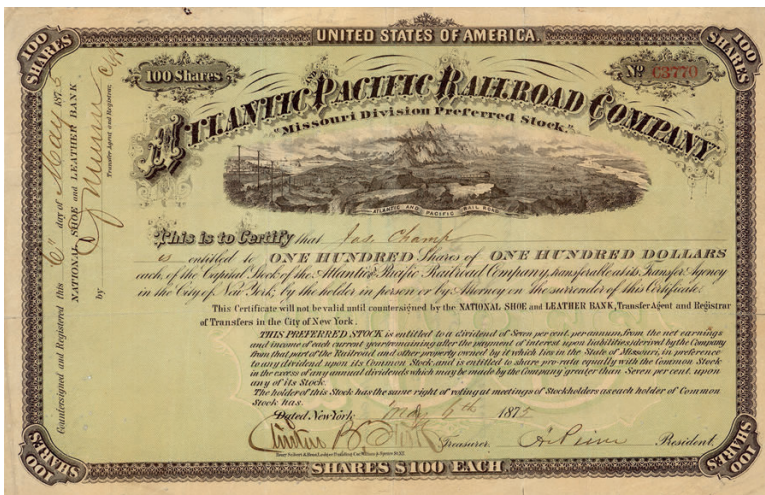 UNITED STATES OF AMERICA.
100 SHARES
100 SHARES
100 Shares
No. C3770
ATLANTIC AND PACIFIC RAILROAD COMPANY
"Missouri Division Preferred Stock."
ATLANTIC AND PACIFIC RAIL ROAD
This is to Certify that Jas. Champ
is entitled to ONE HUNDRED Shares of ONE HUNDRED DOLLARS
each, of the Capital Stock of the Atlantic & Pacific Railroad Company, transferable at its Transfer Agency
in the City of New York, by the holder in person or by Attorney on the surrender of this Certificate.
This Certificate will not be valid until countersigned by the NATIONAL SHOE and LEATHER BANK, Transfer Agent and Registrar
of Transfers in the City of New York.
THIS PREFERRED STOCK is entitled to a dividend of Seven per cent. per annum, from the net earnings
and income of each current year remaining after the payment of interest upon liabilities, derived by the Company
from that part of the Railroad and other property owned by it which lies in the State of Missouri, in preference
to any dividend upon its Common Stock, and is entitled to share pro-rata equally with the Common Stock
in the excess of any annual dividends which may be made by the Company greater than Seven per cent. upon
any of its Stock.
The holder of this Stock has the same right of voting at meetings of Stockholders as each holder of Common
Stock has.
Dated New York May 6th 1875
Treasurer. President.
100 SHARES
SHARES $100 EACH
100 SHARES
Countersigned and Registered this 6" day of May 1875
NATIONAL SHOE and LEATHER BANK
by
Transfer Agent and Registrar,